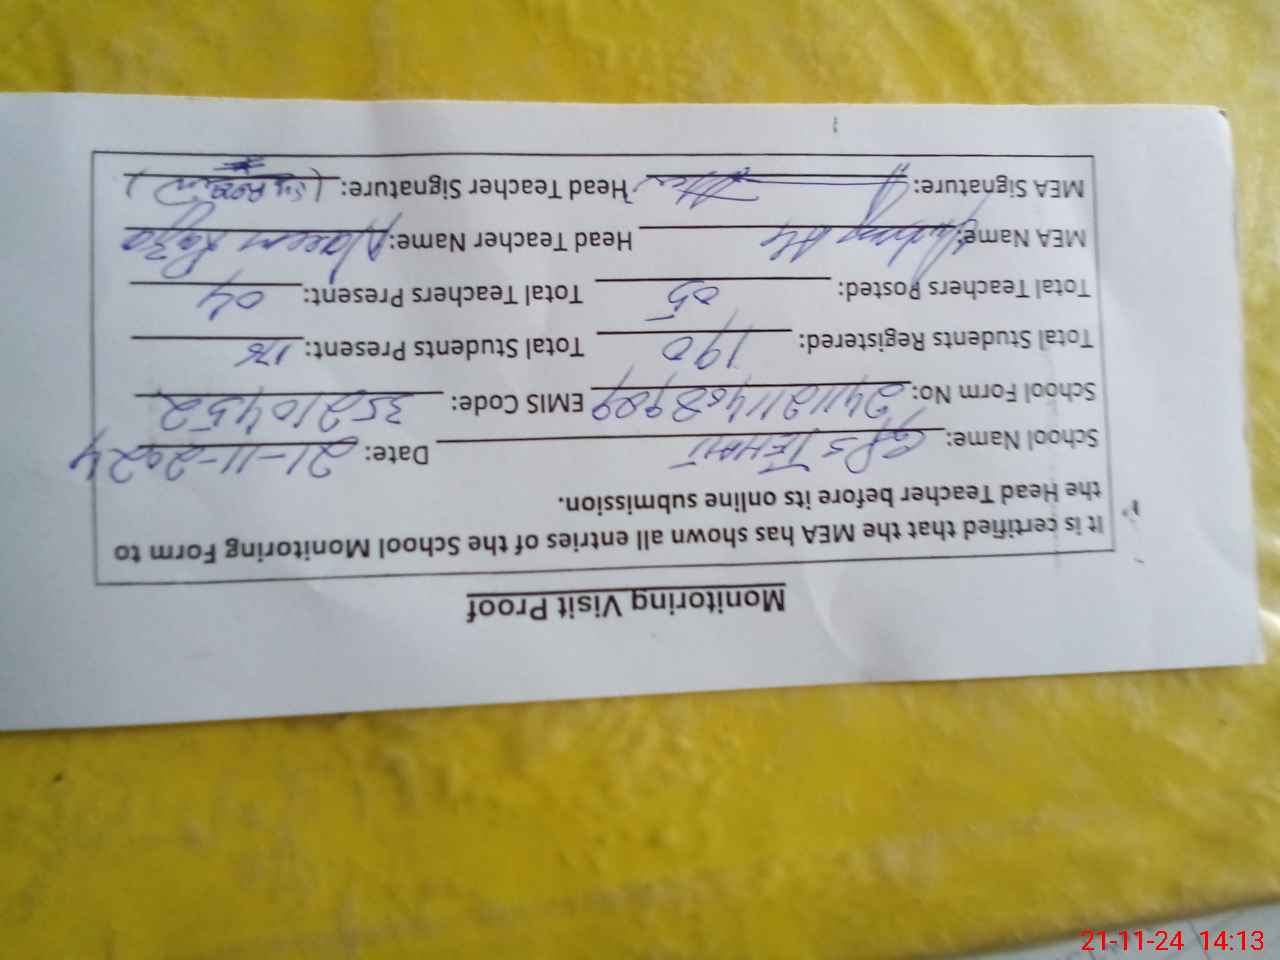 Monitoring Visit Proof
It is certified that the MEA has shown all entries of the School Monitoring Form to
the Head Teacher before its online submission.
School Name: GPS JEHANT Date: 21-11-2024
School Form No: EMIS Code: 35210452
Total Students Registered: 190 Total Students Present: 176
Total Teachers Posted: 05 Total Teachers Present: 04
MEA Name: Head Teacher Name: Naeem Raza
MEA Signature: Head Teacher Signature:
21-11-24 14:13